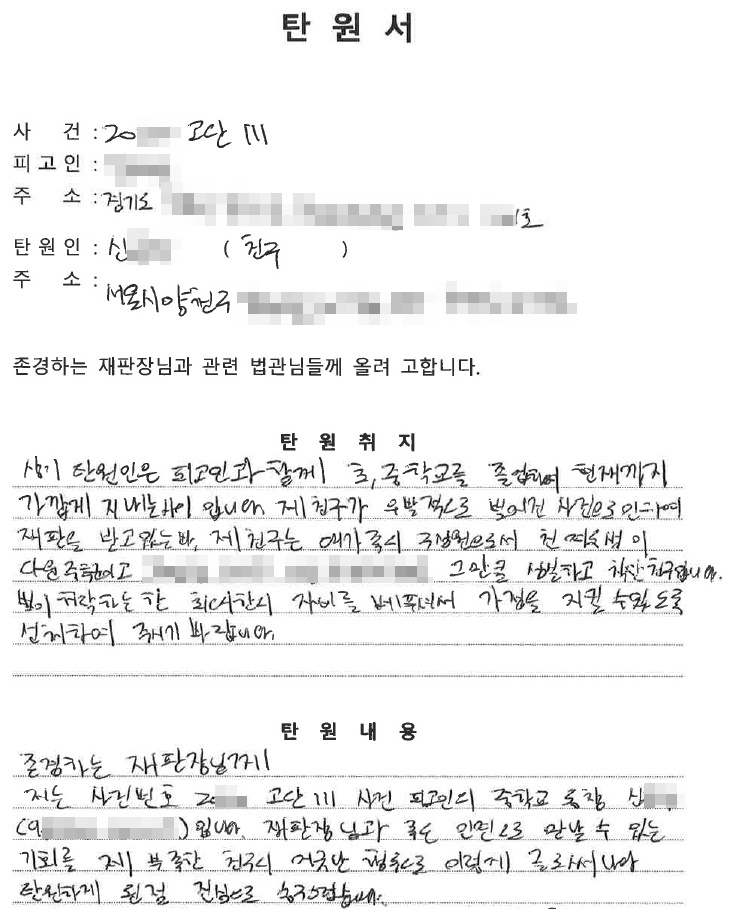 탄 원 서
사 건 : 20 고단 111
피 고 인 :
주 소 : 경기도 호
탄 원 인 : 신 ( 친구 )
주 소 : 서울시 양천구
존경하는 재판장님과 관련 법관님들께 올려 고합니다.
탄 원 취 지
상기 탄원인은 피고인과 함께 초,중학교를 졸업하여 현재까지
가깝게 지내는 사이 입니다. 제 친구가 우발적으로 벌어진 사건으로 인하여
재판을 받고 있는바, 제 친구는 구성원으로서
그만큼 성실하고 착한 친구입니다.
법이 허락하는 한 최대한의 자비를 베푸셔서 가정을 지킬 수 있도록
선처하여 주시기 바랍니다.
탄 원 내 용
존경하는 재판장님께
저는 사건번호 20 고단 111 사건 피고인의 중학교 동창 신
( ) 입니다. 재판장님과 좋은 인연으로 만날 수 있는
기회를 제 부족한 친구의 어긋난 행동으로 이렇게 글로써나마
탄원하게 된점 진심으로